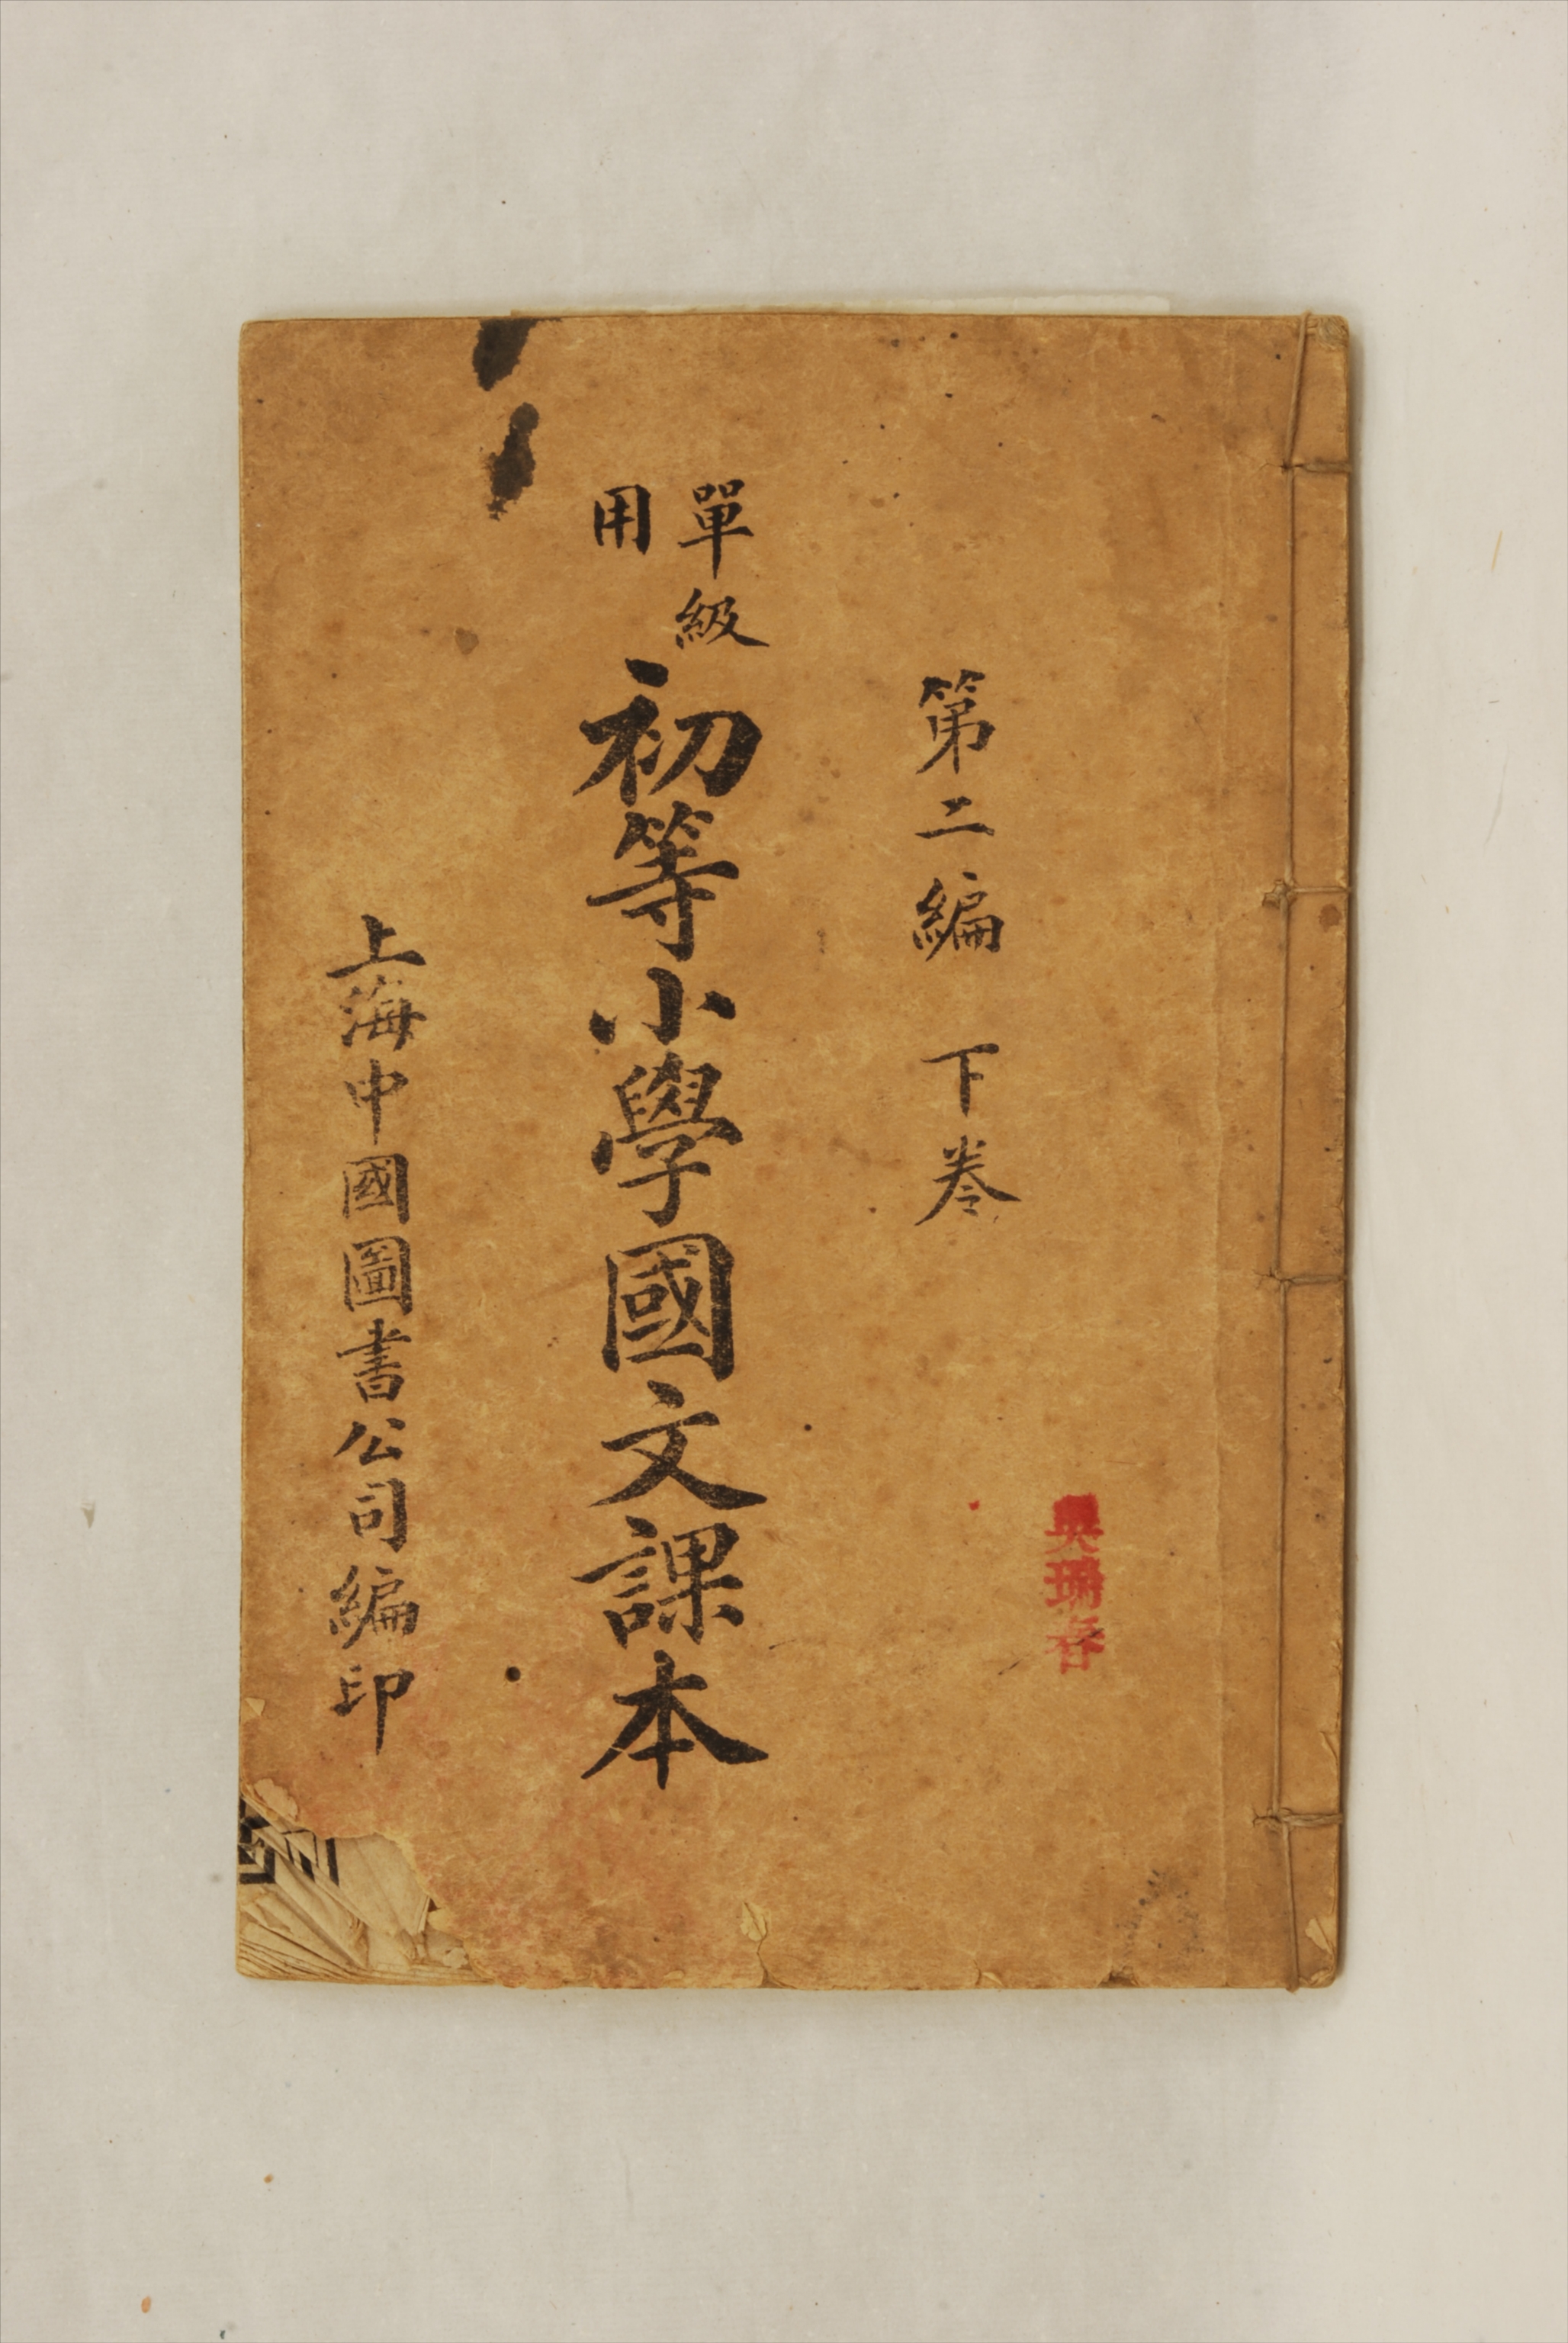 第二編 下卷
單級
用
初等小學國文課本
上海中國圖書公司編印
吳瑞春